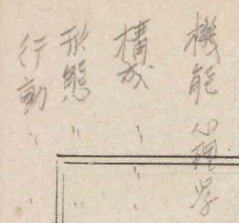 機能心理学
構成〃〃〃
形態〃〃〃
行動〃〃〃